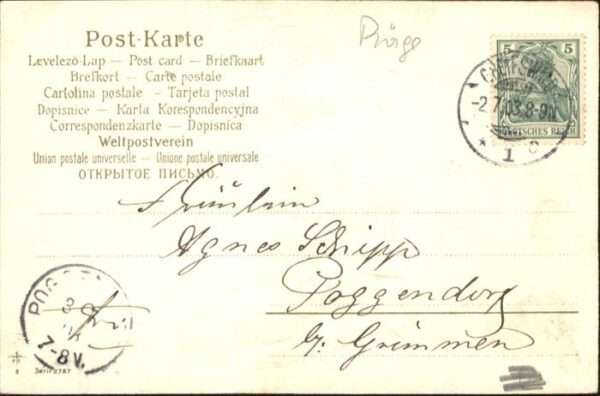 Post-Karte
Levelező-Lap — Post card — Briefkaart
Brefkort — Carte postale
Cartolina postale — Tarjeta postal
Dopisnice — Karta Korespondencyjna
Correspondenzkarte — Dopisnica
Weltpostverein
Union postale universelle — Unione postale universale
ОТКРЫТОЕ ПИСЬМО.
5 5
-2.7.03.8-9N
DEUTSCHES REICH
* 1 c
Fräulein
Agnes Schipp
Poggendorf
b/ Grimmen
7-8V.